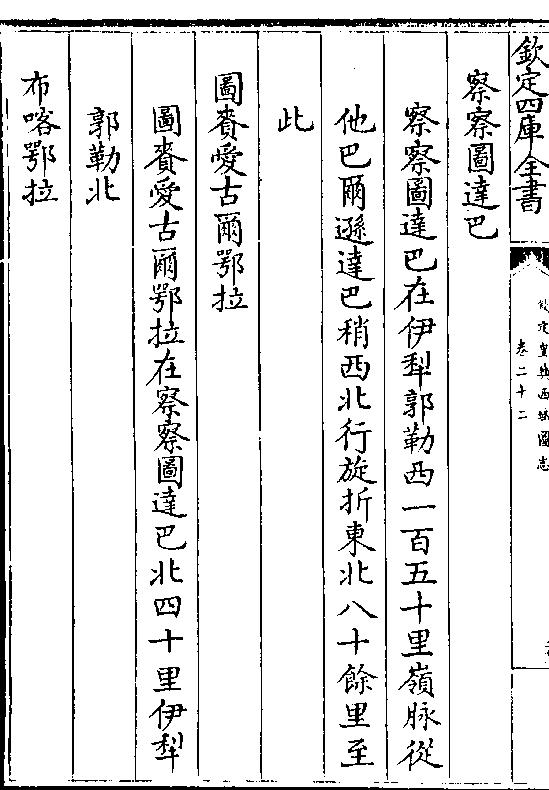 欽定四庫全書
欽定皇輿西域圖志
卷二十二
察察圖達巴
察察圖達巴在伊犁郭勒西一百五十里嶺脉從
他巴爾遜達巴稍西北行旋折東北八十餘里至
此
圖賚愛古爾鄂拉
圖賚愛古爾鄂拉在察察圖達巴北四十里伊犁
郭勒北
布喀鄂拉